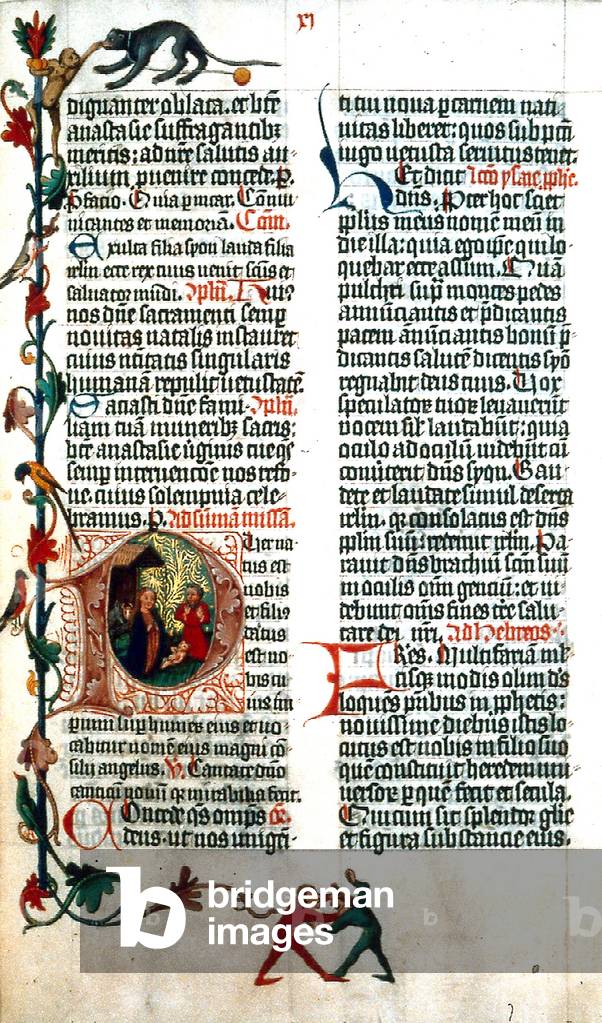 XI
diguanter oblata. et bte
anastasie suffragantibz
meritis: ad nre salutis au-
xilium puenire concede. P.
Pfacio. Quia p incar. Comu
nicantes et memoriam. Com.
Exulta filia syon lauda filia
irlm ecce rex tuus venit scus et
saluator mudi. Pplm.
nos dne sacramenti semp
nouitas natalis instauret
cuius natiuitatis singularis
humanā repulit uetustatē.
Saciasti dne fami- Pplm.
liam tuā muneribz sacris:
bte anastasie uginis
semp interuencoe nos refo-
ue. cuius solempnia cele-
bramus. P. Ad sumā missā.
Puer na-
tus est
nobis
et filiꝰ
datus
est no
bis cu-
ius im
perium sup humerū eius et uo
cabitur nomē eius magni cō-
silii angelus. V. Cantate dno
canticū nouū qr mirabilia fecit.
Concede qs omps
deus. ut nos unigeni-
ti tui noua p carnem nati
uitas liberet: quos sub pcti
iugo uetusta seruitus tenet.
Hec dicit Lco ysaie pphe.
dns. Propter hoc sciet
pplus meus nomē meū in
die illa: quia ego ipse qui lo-
quebar ecce assum. Quā
pulchri supra montes pedes
annūciantis et pdicantis
pacem ānūciantis bonū p-
dicantis salutē dicentis syō
regnabit deus tuus. Vox
speculatorū tuorū leuauerūt
vocem sil laudabūt: quia
oculo ad oculū uidebūt cū
conuerterit dns syon. Gau-
dete et laudate simul deserta
irlm. qr consolatus est dns
pplm suū: redemit irlm. Pa-
rauit dns brachiū scm suū
in oculis oim genciū: et ui
debunt oms fines tre salu-
tare dei nri. Ad hebreos.
Fres. Multifariā mul-
tisqz modis olim ds
loques pribus in pphetis:
nouissime diebus istis lo-
cutus est nobis in filio suo
quē constituit heredem uni
uersorū p quē fecit et secula.
Qui cum sit splendor glie
et figura substancie eius.
bridgeman
images